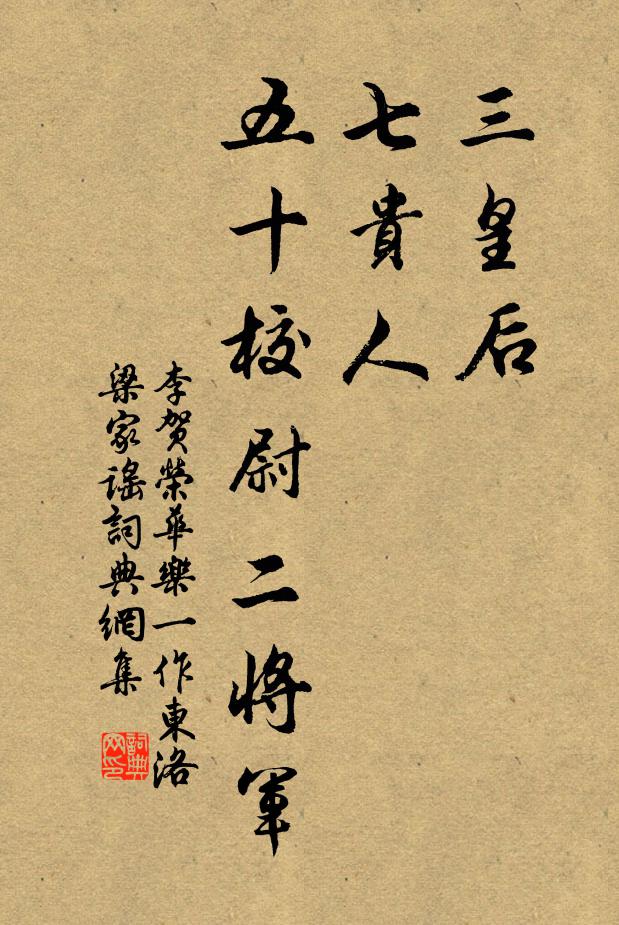 三皇后
七貴人
五十校尉二將軍
李賀榮華樂一作東洛
梁家謠詞典網集
詞典網印